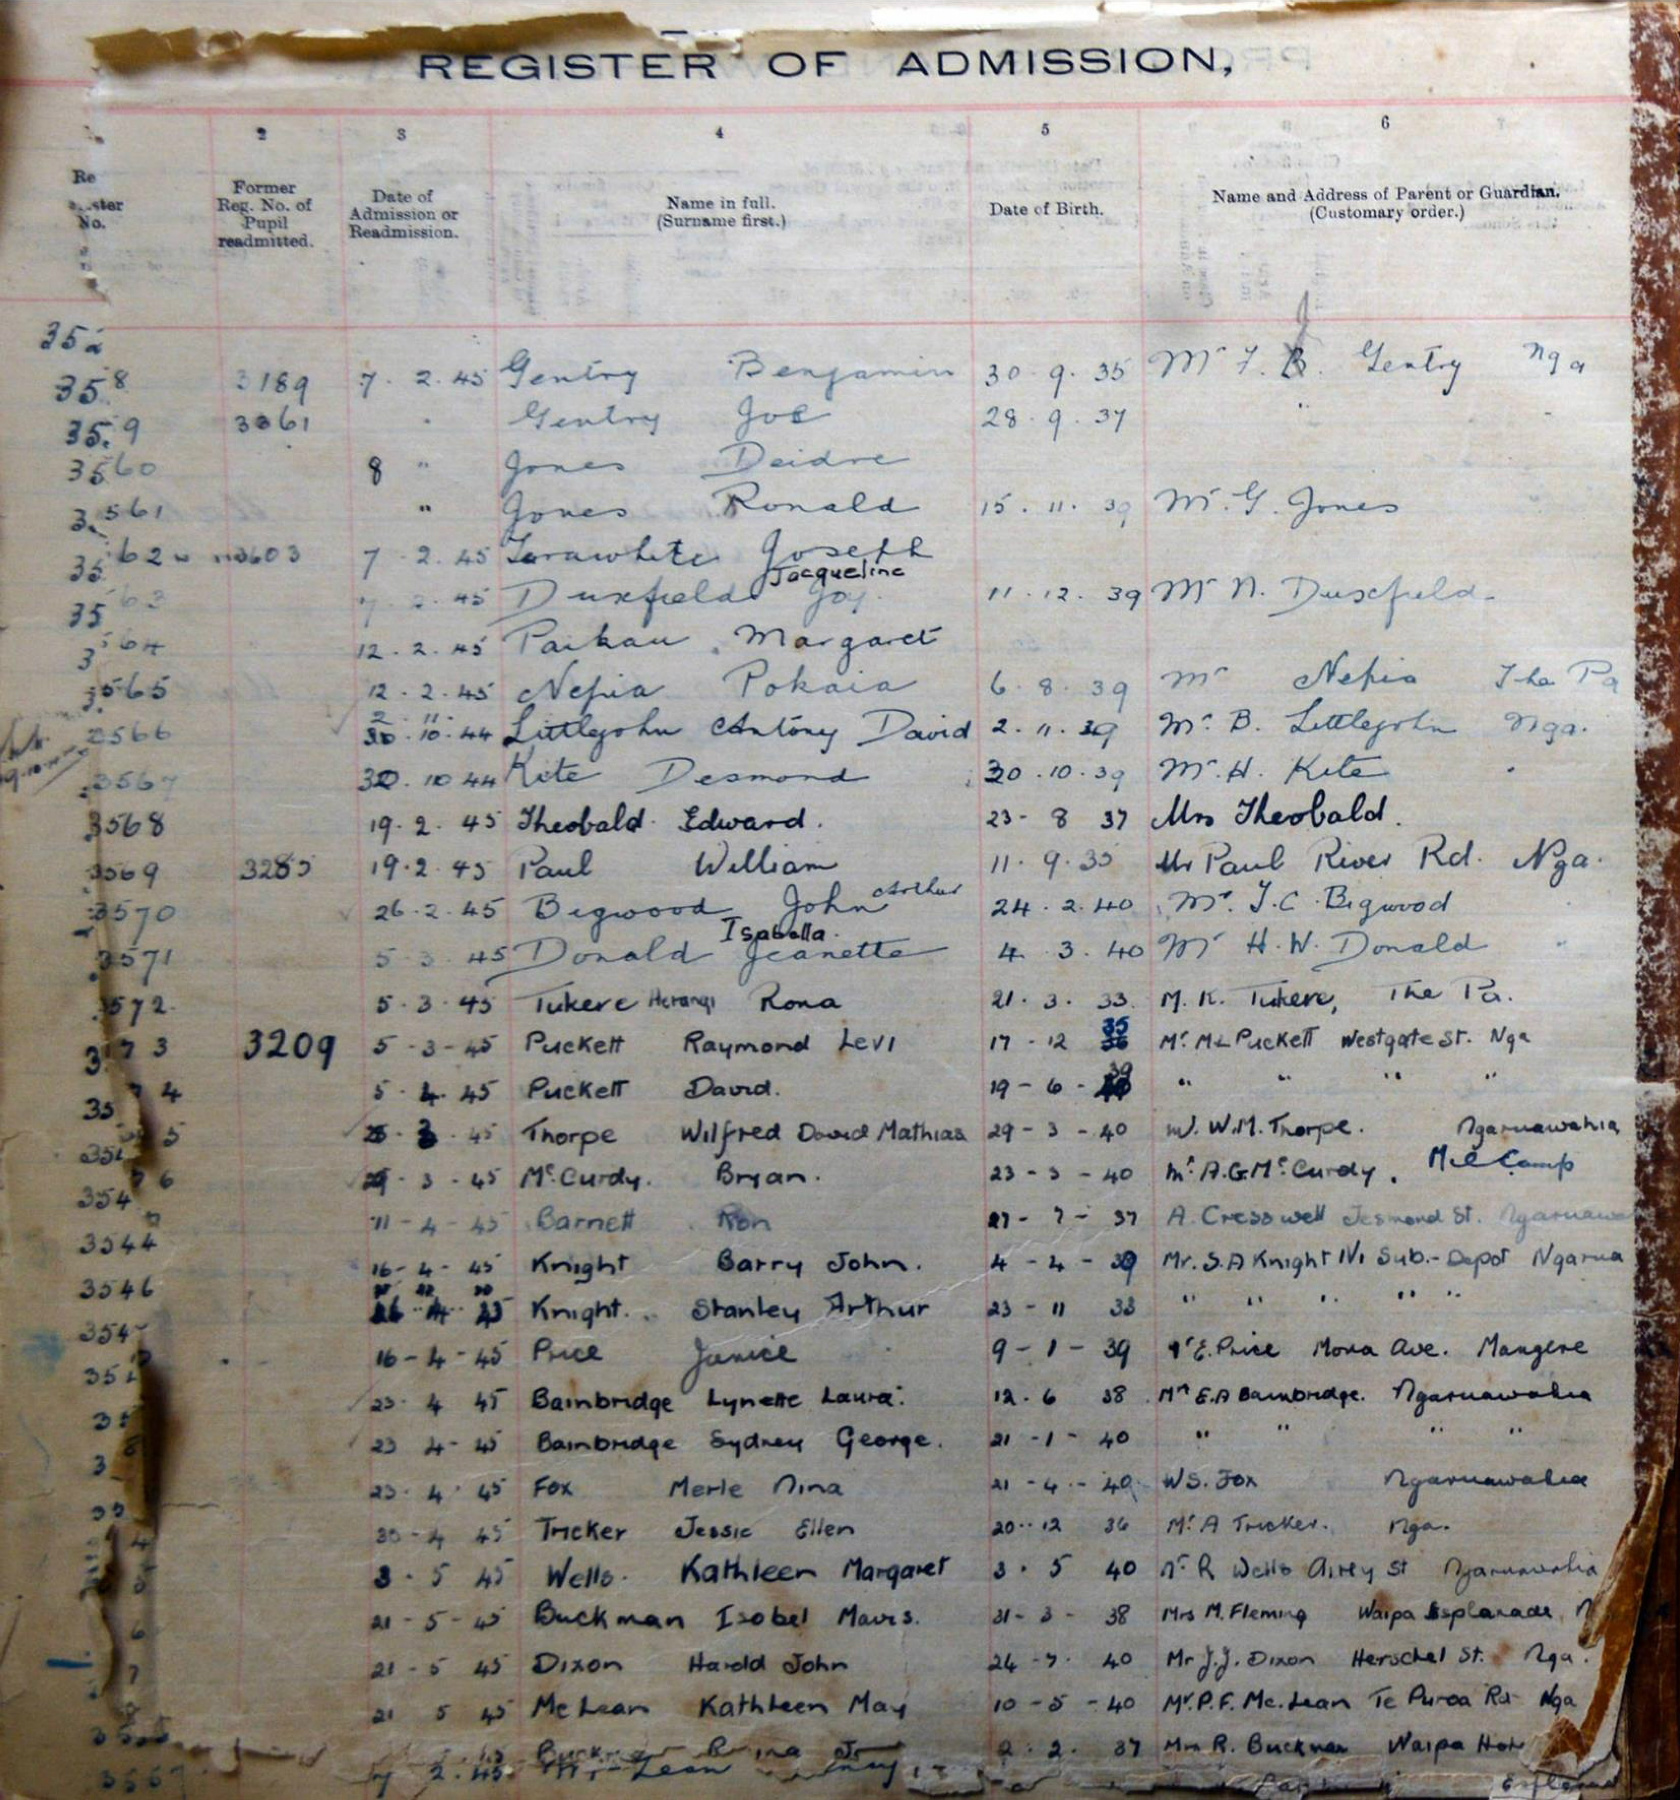 REGISTER OF ADMISSION,
2 3 4 5 6
Former Reg. No. of Pupil readmitted.
Date of Admission or Readmission.
Name in full. (Surname first.)
Date of Birth.
Name and Address of Parent or Guardian. (Customary order.)
3189 7. 2. 45 Gentry Benjamin 30. 9. 35 Mr Gentry Nga
Gentry Joe 28. 9. 37 "
3560 8 " Jones Deidre
3561 " Jones Ronald 15. 11. 39 Mr. G. Jones
7. 2. 45 Joseph
Jacqueline
45 Duxfield Joy 11. 12. 39 Mr N. Duxfield
12. 2. 45 Paikau Margaret
3565 12. 2. 45 Nepia Pokaia 6. 8. 39 Mr Nepia The Pa
3566 30. 10. 44 Littlejohn Antony David 2. 11. 39 Mr. B. Littlejohn Nga.
3567 30. 10 44 Kite Desmond 30. 10. 39 Mr. H. Kite "
3568 19. 2. 45 Theobald Edward. 23- 8 37 Mrs Theobald.
3569 3285 19. 2. 45 Paul William 11. 9. 35 Mr Paul River Rd. Nga.
3570 26. 2. 45 Bigwood John Arthur 24. 2. 40 Mr. Bigwood
Isabella
3571 5. 3. 45 Donald Jeanette 4. 3. 40 Mr H. W. Donald "
3572 5. 3. 45 Tukere Herangi Rona 21. 3. 33 M. K. Tukere, The Pa.
3209 5 - 3 - 45 Puckett Raymond Levi 17 - 12 35 Mr. Puckett Westgate St. Nga
5. 4. 45 Puckett David. 19 - 6 - 39 " " " "
45 Thorpe Wilfred David Mathias 29 - 3 - 40 W.M. Thorpe. Ngaruawahia
3 - 45 McCurdy. Bryan. 23 - 3 - 40 Mr. A.G. McCurdy. Mil Camp
11 - 4 - 45 Barnett Ron 27 - 7 - 37 A. Cresswell Jesmond St.
3544 16 - 4 - 45 Knight Barry John. 4 - 4 - 39 Mr. S.A Knight Sub.-Depot Ngarua
3546 Knight. Stanley Arthur 23 - 11 33 " " " " "
16 - 4 - 45 Price Janice 9 - 1 - 39 E. Price Mona Ave. Mangere
23. 4 45 Bainbridge Lynette Laura. 12. 6 38 Mr E.A Bainbridge. Ngaruawahia
23 4 - 45 Bainbridge Sydney George. 21 - 1 - 40 " " " "
23. 4. 45 Fox Merle Nina 21 - 4 - 40 W S. Fox Ngaruawahia
30 - 4 45 Tricker Jessie Ellen 20 - 12 36 Mr. A Tricker. Nga.
3. 5 45 Wells. Kathleen Margaret 3. 5 40 R Wells Airey St Ngaruawahia
21 - 5 - 45 Buckman Isobel Mavis. 31 - 3 - 38 Mrs M. Fleming Waipa Esplanade
21 - 5 45 Dixon Harold John 24 - 7. 40 Mr J.J. Dixon Herschel St. Nga.
21 5 45 McLean Kathleen May 10 - 5 - 40 Mr. P.F. McLean Te Puroa Rd Nga
2. 2. 37 R. Buckman Waipa